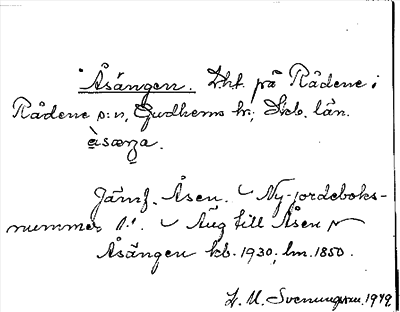 Åsängen. Lht. på Rådene i
Rådene s:n, Gudhems hd; Skb. län.
àsæŋa.
Jämf. Åsen. Ny jordeboks-
nummer 1. Äng till Åsen
Åsängen kb. 1930; lm. 1850.
L. M. Svenungsson. 1949.